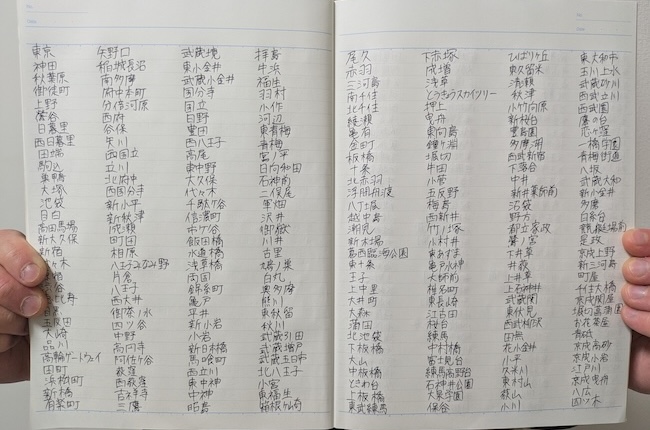 東京
神田
秋葉原
御徒町
上野
鶯谷
日暮里
西日暮里
田端
駒込
巣鴨
大塚
池袋
目白
高田馬場
新大久保
新宿
々木
宿
比寿
五反田
大崎
品川
高輪ゲートウェイ
田町
浜松町
新橋
有楽町
矢野口
稲城長沼
南多摩
府中本町
分倍河原
西府
谷保
矢川
西国立
立川
北府中
西国分寺
新小平
新秋津
成瀬
町田
相原
八王子みなみ野
片倉
八王子
西大井
御茶ノ水
四ツ谷
中野
高円寺
阿佐ケ谷
荻窪
西荻窪
吉祥寺
三鷹
武蔵境
東小金井
武蔵小金井
国分寺
国立
日野
豊田
西八王子
高尾
東中野
大久保
代々木
千駄ケ谷
信濃町
市ケ谷
飯田橋
水道橋
浅草橋
両国
錦糸町
亀戸
平井
新小岩
小岩
新日本橋
馬喰町
西立川
東中神
中神
昭島
拝島
牛浜
福生
羽村
小作
河辺
東青梅
青梅
宮ノ平
日向和田
石神前
二俣尾
軍畑
沢井
御嶽
川井
古里
鳩ノ巣
白丸
奥多摩
熊川
東秋留
秋川
武蔵引田
武蔵増戸
武蔵五日市
北八王子
小宮
東福生
箱根ケ崎
尾久
赤羽
三河島
南千住
北千住
綾瀬
亀有
金町
板橋
十条
北赤羽
浮間舟渡
八丁堀
越中島
潮見
新木場
葛西臨海公園
東十条
王子
上中里
大井町
大森
蒲田
北池袋
下板橋
大山
中板橋
ときわ台
上板橋
東武練馬
下赤塚
成増
浅草
とうきょうスカイツリー
押上
曳舟
東向島
鐘ヶ淵
堀切
牛田
小菅
五反野
梅島
西新井
竹ノ塚
小村井
東あずま
亀戸水神
大師前
椎名町
東長崎
江古田
桜台
練馬
中村橋
富士見台
練馬高野台
石神井公園
大泉学園
保谷
ひばりヶ丘
東久留米
清瀬
秋津
小竹向原
新桜台
豊島園
多摩湖
西武新宿
下落合
中井
新井薬師前
沼袋
野方
都立家政
鷺ノ宮
下井草
井荻
上井草
上石神井
武蔵関
東伏見
西武柳沢
田無
花小金井
小平
久米川
東村山
萩山
小川
東大和市
玉川上水
武蔵砂川
西武立川
西武園
鷹の台
恋ヶ窪
一橋学園
青梅街道
八坂
武蔵大和
新小金井
多磨
白糸台
競艇場前
是政
京成上野
新三河島
町屋
千住大橋
京成関屋
堀切菖蒲園
お花茶屋
青砥
京成高砂
京成小岩
江戸川
京成曳舟
八広
四ツ木